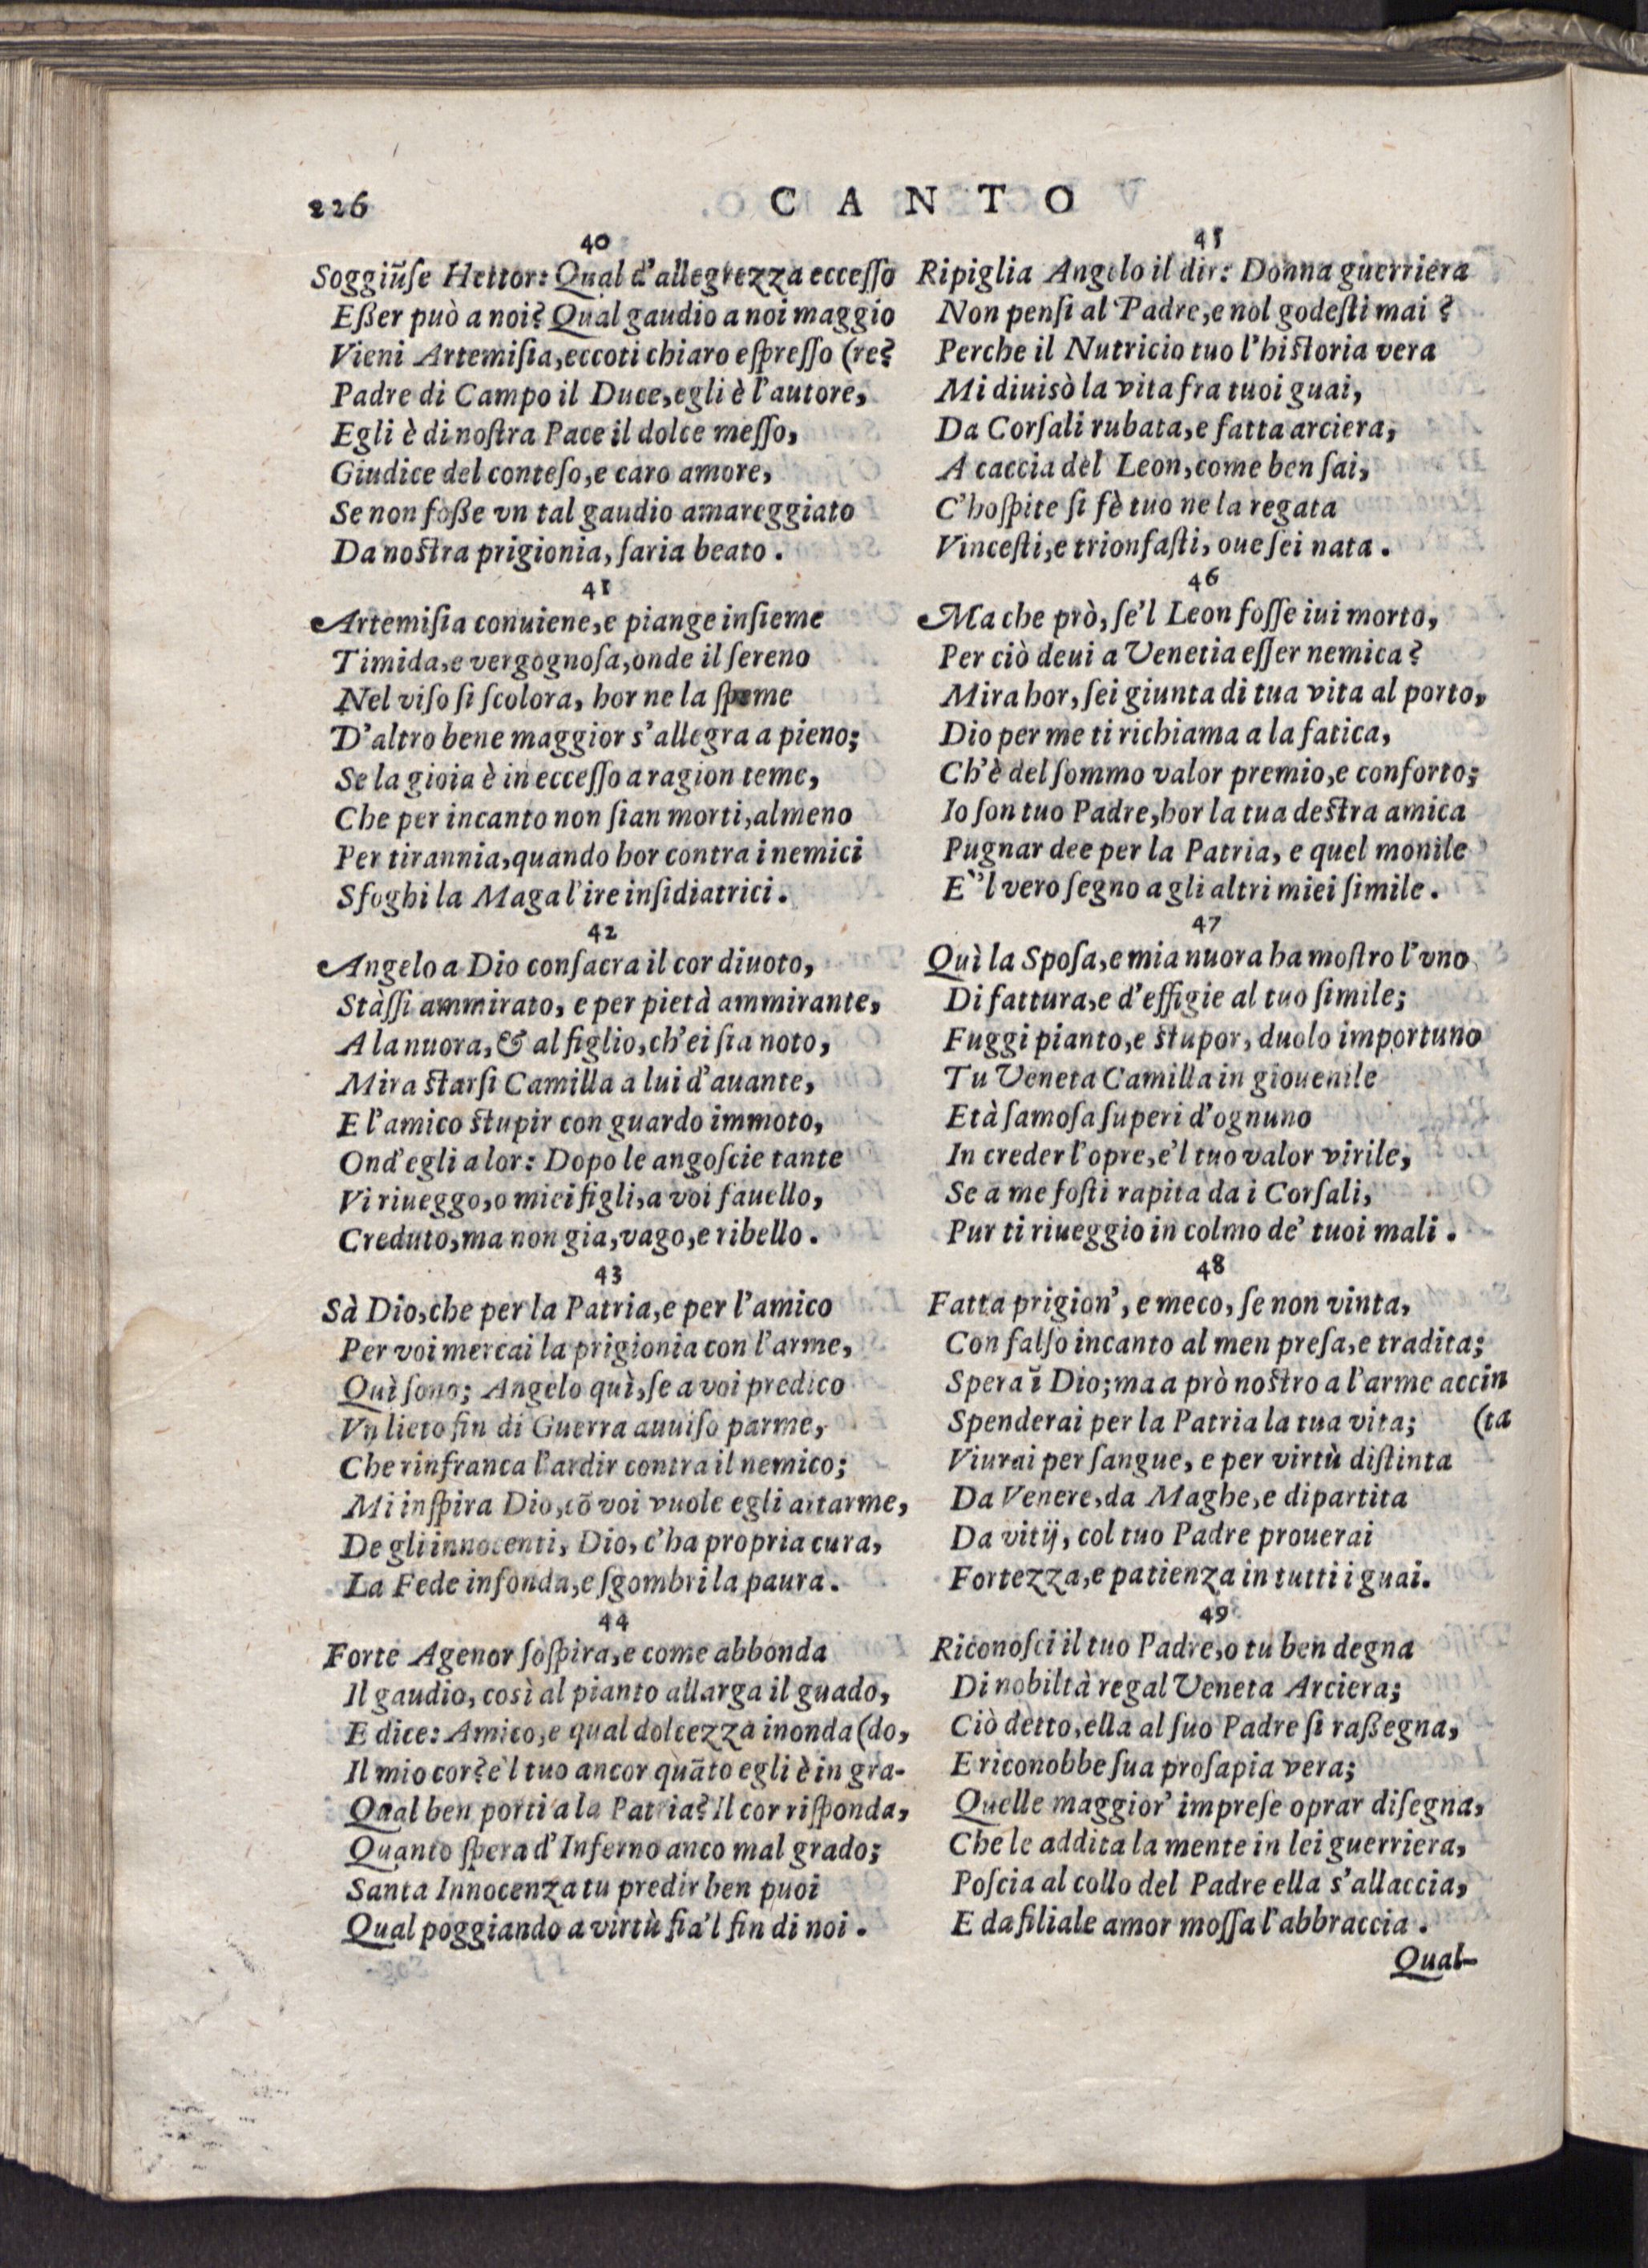 226
CANTO
40
Soggiũſe Hettor: Qual d'allegrezza ecceſſo
Eßer può a noi? Qual gaudio a noi maggio
Vieni Artemiſia, eccoti chiaro eſpreſſo (re?
Padre di Campo il Duce, egli è l'autore,
Egli è di noſtra Pace il dolce meſſo,
Giudice del conteſo, e caro amore,
Se non foße vn tal gaudio amareggiato
Da noſtra prigionia, ſaria beato.
41
Artemiſia conuiene, e piange inſieme
Timida, e vergognoſa, onde il ſereno
Nel viſo ſi ſcolora, hor ne la ſpeme
D'altro bene maggior s'allegra a pieno;
Se la gioia è in ecceſſo a ragion teme,
Che per incanto non ſian morti, almeno
Per tirannia, quando hor contra i nemici
Sfoghi la Maga l'ire inſidiatrici.
42
Angelo a Dio conſacra il cor diuoto,
Stàſſi ammirato, e per pietà ammirante,
A la nuora, & al figlio, ch'ei ſia noto,
Mira ſtarſi Camilla a lui d'auante,
E l'amico ſtupir con guardo immoto,
Ond'egli a lor: Dopo le angoſcie tante
Vi riueggo, o miei figli, a voi fauello,
Creduto, ma non gia, vago, e ribello.
43
Sà Dio, che per la Patria, e per l'amico
Per voi mercai la prigionia con l'arme,
Quì ſono; Angelo quì, ſe a voi predico
Vn lieto fin di Guerra auuiſo parme,
Che rinfranca l'ardir contra il nemico;
Mi inſpira Dio, cõ voi vuole egli aitarme,
De gli innocenti, Dio, c'ha propria cura,
La Fede infonda, e ſgombri la paura.
44
Forte Agenor ſoſpira, e come abbonda
Il gaudio, così al pianto allarga il guado,
E dice: Amico, e qual dolcezza inonda (do,
Il mio cor? e'l tuo ancor quãto egli è in gra-
Qual ben porti a la Patria? Il cor riſponda,
Quanto ſpera d'Inferno anco mal grado;
Santa Innocenza tu predir ben puoi
Qual poggiando a virtù fia'l fin di noi.
45
Ripiglia Angelo il dir: Donna guerriera
Non penſi al Padre, e nol godeſti mai?
Perche il Nutricio tuo l'hiſtoria vera
Mi diuisò la vita fra tuoi guai,
Da Corſali rubata, e fatta arciera,
A caccia del Leon, come ben ſai,
C'hoſpite ſi fè tuo ne la regata
Vinceſti, e trionfaſti, oue ſei nata.
46
Ma che prò, ſe'l Leon foſſe iui morto,
Per ciò deui a Venetia eſſer nemica?
Mira hor, ſei giunta di tua vita al porto,
Dio per me ti richiama a la fatica,
Ch'è del ſommo valor premio, e conforto;
Io ſon tuo Padre, hor la tua deſtra amica
Pugnar dee per la Patria, e quel monile
E`'l vero ſegno a gli altri miei ſimile.
47
Quì la Spoſa, e mia nuora ha moſtro l'vno
Di fattura, e d'effigie al tuo ſimile;
Fuggi pianto, e ſtupor, duolo importuno
Tu Veneta Camilla in giouenile
Età famoſa ſuperi d'ognuno
In creder l'opre, e'l tuo valor virile,
Se a me foſti rapita da i Corſali,
Pur ti riueggio in colmo de' tuoi mali.
48
Fatta prigion', e meco, ſe non vinta,
Con falſo incanto al men preſa, e tradita;
Spera ĩ Dio; ma a prò noſtro a l'arme accin
Spenderai per la Patria la tua vita; (ta
Viurai per ſangue, e per virtù diſtinta
Da Venere, da Maghe, e dipartita
Da vitij, col tuo Padre prouerai
Fortezza, e patienza in tutti i guai.
49
Riconoſci il tuo Padre, o tu ben degna
Di nobiltà regal Veneta Arciera;
Ciò detto, ella al ſuo Padre ſi raßegna,
E riconobbe ſua proſapia vera;
Quelle maggior' impreſe oprar diſegna,
Che le addita la mente in lei guerriera,
Poſcia al collo del Padre ella s'allaccia,
E da filiale amor moſſa l'abbraccia.
Qual-